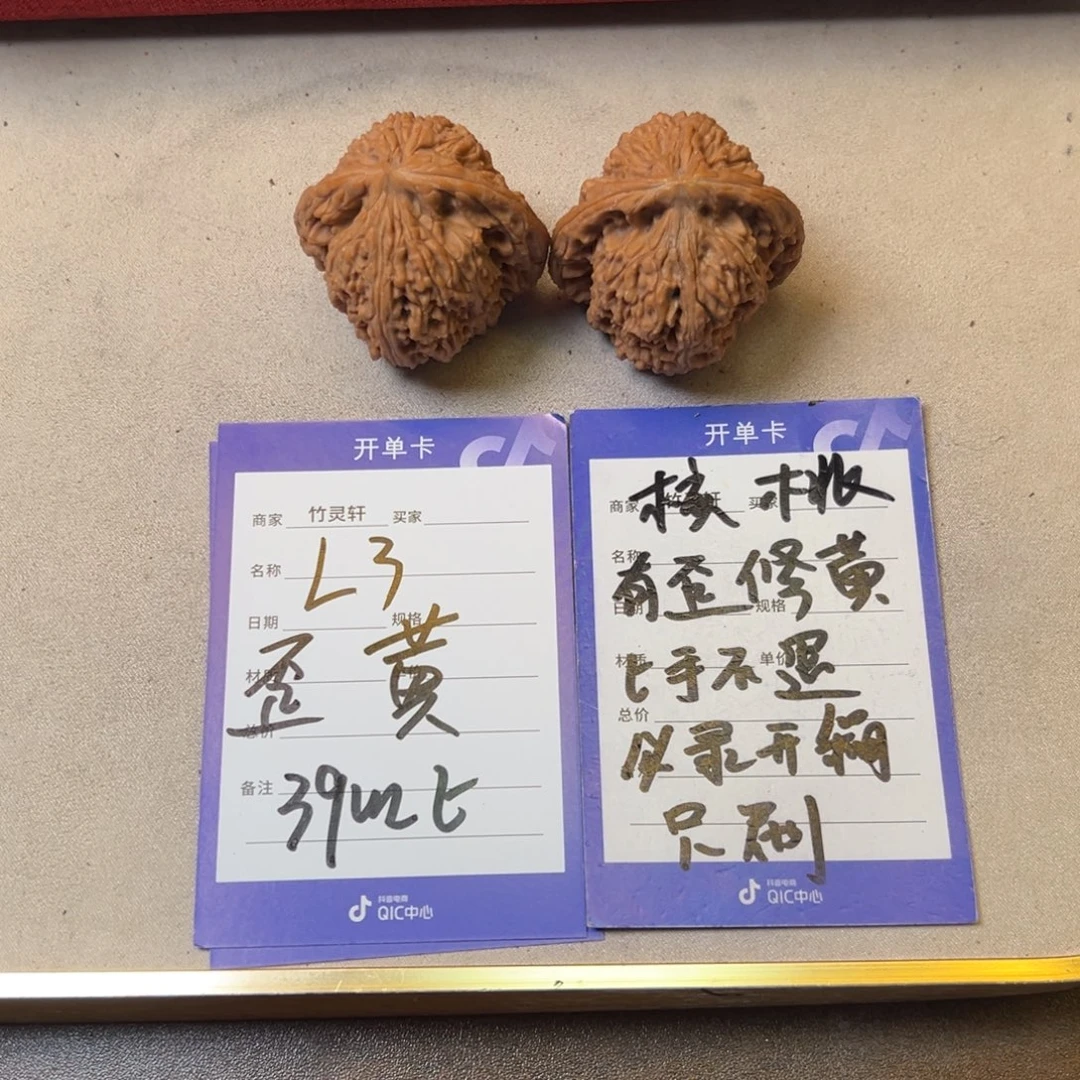 开单卡
商家 竹灵轩 买家
名称 L3
日期 规格
歪 黄
总价
备注 39以上
抖音电商
QIC中心
开单卡
商家 竹灵轩 买家
核桃
名称
有歪修黄
日期 规格
材质 单价
上手不退
总价
必录开箱
只刷
抖音电商
QIC中心